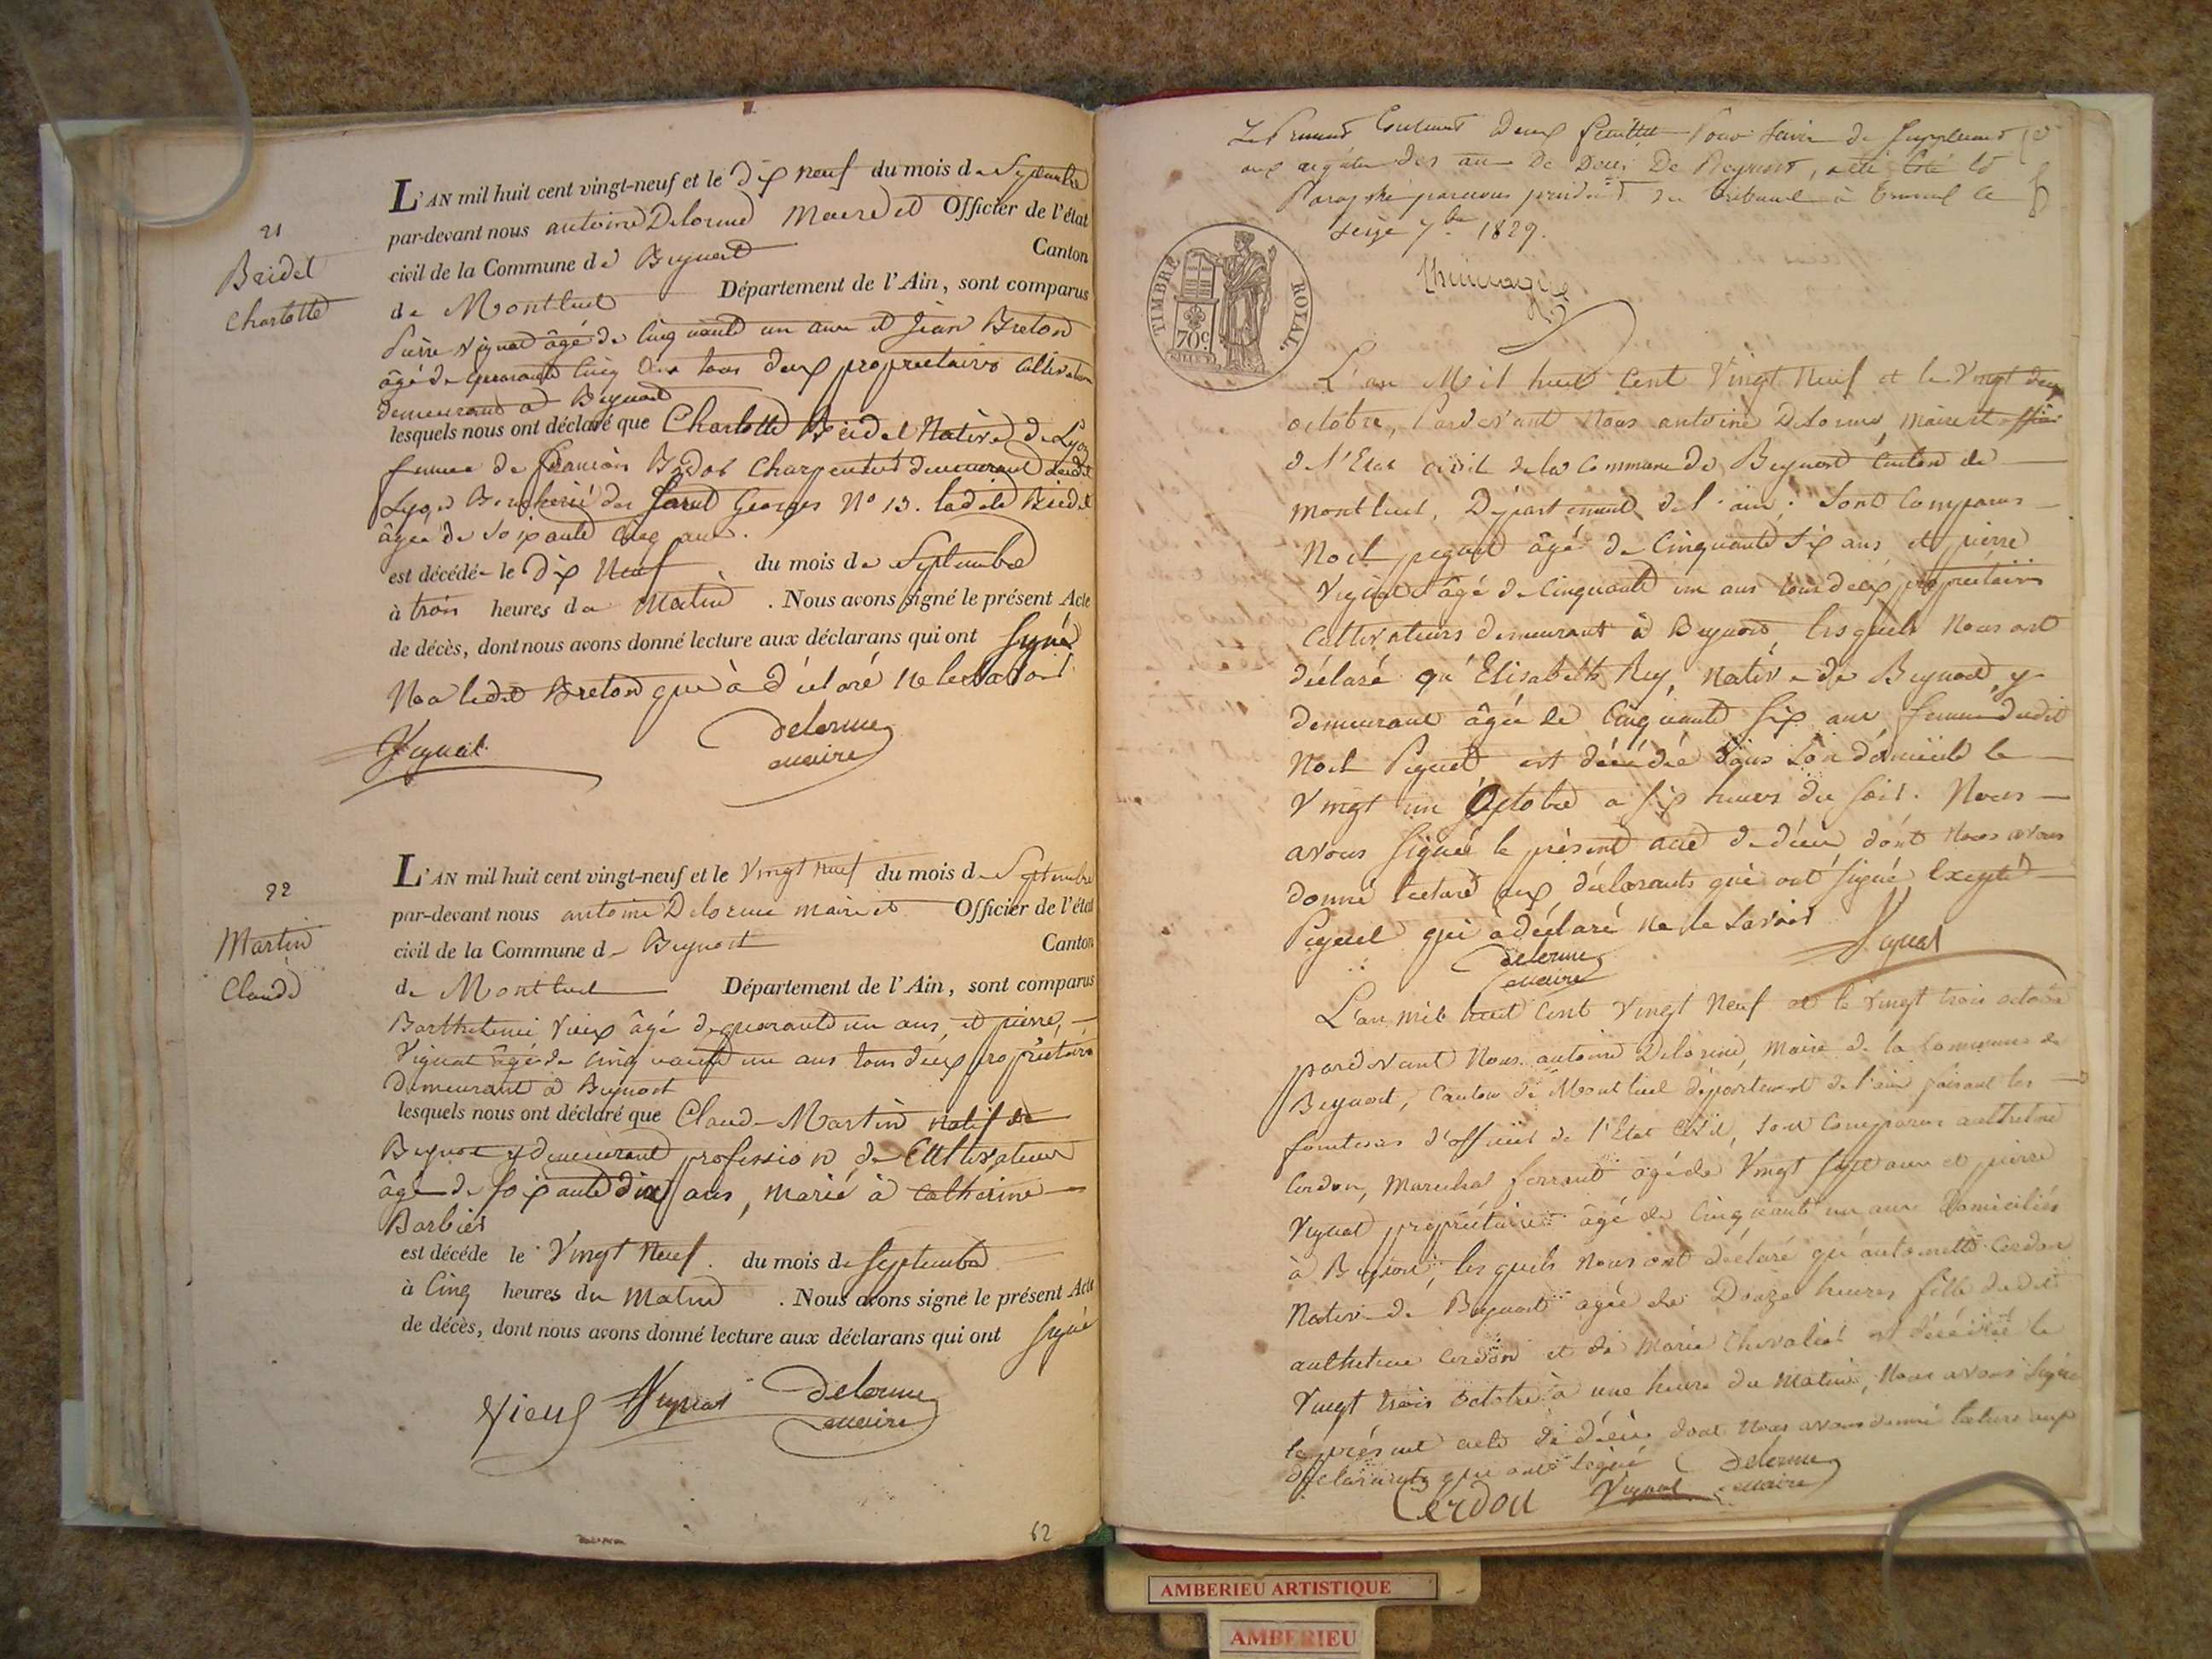 21
Bridel
Charlotte
L'AN mil huit cent vingt-neuf et le dix neuf du mois de Septembre
par-devant nous antoine Delorme Maire et Officier de l'état
civil de la Commune de Beynost Canton
de Montluel Département de l'Ain, sont comparus
Pierre Vignat âgé de Cinquante un ans et Jean Breton
âgé de quarante Cinq ans tous deux propriétaires Cultivateurs
demeurant à Beynost
lesquels nous ont déclaré que Charlotte Bridel Native de Lyon
femme de francois Charpentier demeurant
Lyon Boucherie des Saint Georges N° 13. ladite Bridel
âgée de soixante Cinq ans.
est décédée le dix Neuf du mois de Septembre
à trois heures du Matin . Nous avons signé le présent Acte
de décès, dont nous avons donné lecture aux déclarans qui ont signé
Non ledit Breton qui à déclaré ne le savoir
Vignat delorme
maire
22
Martin
Claude
L'AN mil huit cent vingt-neuf et le Vingt neuf du mois de Septembre
par-devant nous antoine Delorme maire et Officier de l'état
civil de la Commune de Beynost Canton
de Montluel Département de l'Ain, sont comparus
Barthelemi Vieux âgé de quarante un ans et pierre
Vignat âgé de Cinquante un ans tous deux propriétaires
demeurant à Beynost
lesquels nous ont déclaré que Claude Martin natif de
Beynost y demeurant profession de Cultivateur
âgé de soixante dix ans, marié à Catherine
Barbier
est décédé le Vingt Neuf. du mois de Septembre
à Cinq heures du Matin . Nous avons signé le présent Acte
de décès, dont nous avons donné lecture aux déclarans qui ont signé
Vieux Vignat Delorme
maire
62
Le Present Contenant deux feuillets Pour servir de supplement
aux registre des de Décès De Beynost, a été Coté et
Paraphé par nous président du tribunal à Trevoux le
seize 7bre 1829.
TIMBRE ROYAL.
70c
L'an Mil huit Cent Vingt Neuf et le Vingt deux
octobre, Pardevant Nous antoine Delorme, Maire et officier
de l'Etat civil de la Commune de Beynost Canton de
Montluel, Département de l'ain; sont Comparus
Noel peguet âgé de Cinquante six ans et pierre
Vignat âgé de Cinquante un ans tous deux propriétaires
Cultivateurs demeurant à Beynost lesquels Nous ont
déclaré qu'Elisabeth Rey, Native de Beynost, y
demeurant âgée de Cinquante six ans femme dudit
Noel Peguet est décédée dans son domicile le
Vingt un Octobre a six heures du soir. Nous
avons signé le présent acte de décès dont Nous avons
donné lecture aux déclarants qui ont signé Excepté
Peguet qui à déclaré Ne le Savoir Vignat
delorme
maire
L'an mil huit Cent Vingt Neuf et le Vingt trois octobre
pardevant Nous antoine Delorme, Maire de la Commune de
Beynost, Canton de Montluel département de l'ain faisant les
fonctions d'officier de l'Etat Civil, sont Comparus anthelme
Cerdon, Marechal ferrant âgé de Vingt sept ans et pierre
Vignat propriétaire âgé de Cinquante un ans Domiciliés
à Beynost, lesquels Nous ont déclaré qu'antoinette Cerdon
Native de Beynost âgée de Douze heures fille dudit
anthelme Cerdon et de Marie Chevalier est décédée le
Vingt trois octobre à une heure du Matin, Nous avons signé
le présent acte de décès dont Nous avons donné lecture aux
déclarants qui ont signé Delorme
Cerdon Vignat maire
AMBERIEU ARTISTIQUE
AMBERIEU